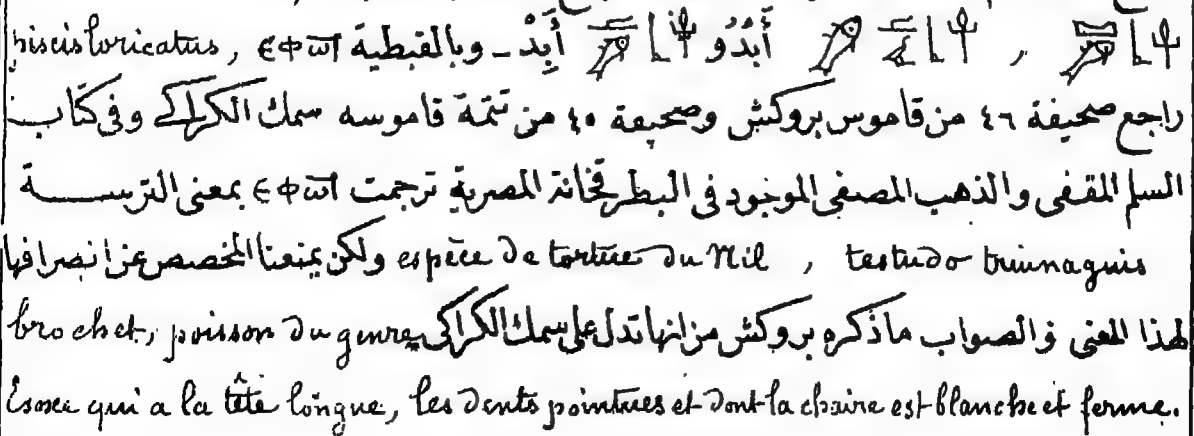 أَبْدُو أَبِدْ ـ وبالقبطية ⲉⲫⲱⲧ piscis loricatus,
راجع صحيفة ٤٦ من قاموس بروكش وصحيفة ٤٥ من تتمة قاموسه سمك الكراكى وفى كتاب
السلم المقفى والذهب المصفى الموجود فى البطرقخانة المصرية ترجمت ⲉⲫⲱⲧ بمعنى الترسة
testudo triunaguis , espèce de tortue du Nil ولكن يمنعنا المخصص عن انصرافها
لهذا المعنى والصواب ماذكره بروكش من انها تدل على سمك الكراكى brochet, poisson du genre
Esoxe qui a la tête longue, les dents pointues et dont la chaire est blanche et ferme.